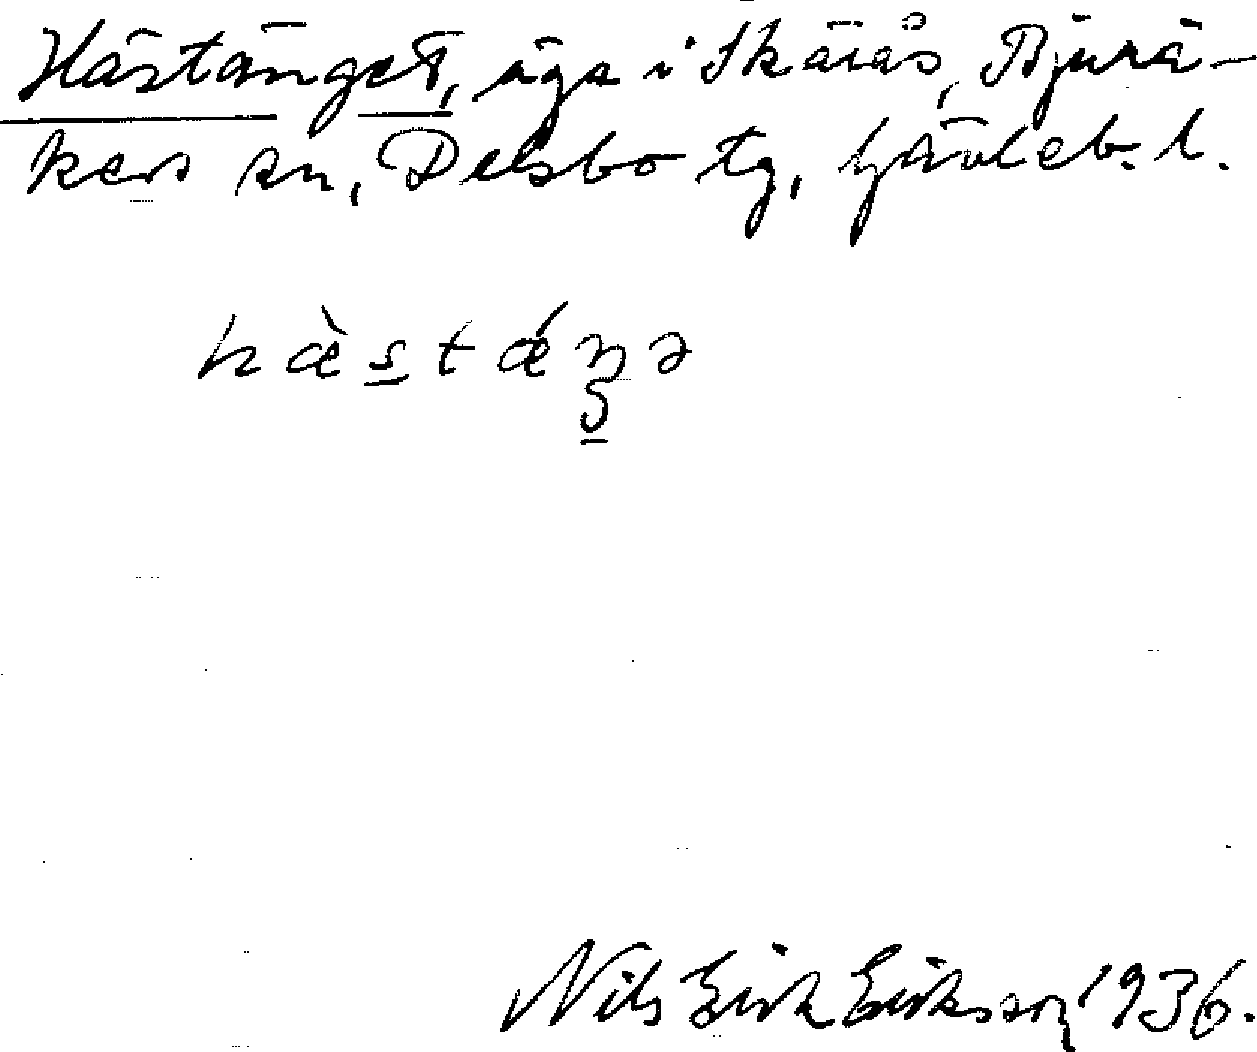 Hästänget, äga i Skärås, Bjurå-
kers sn, Delsbo tg, Gävleb. l.
hæ̀s̲tǽŋə
Nils Erik Eriksson 1936.